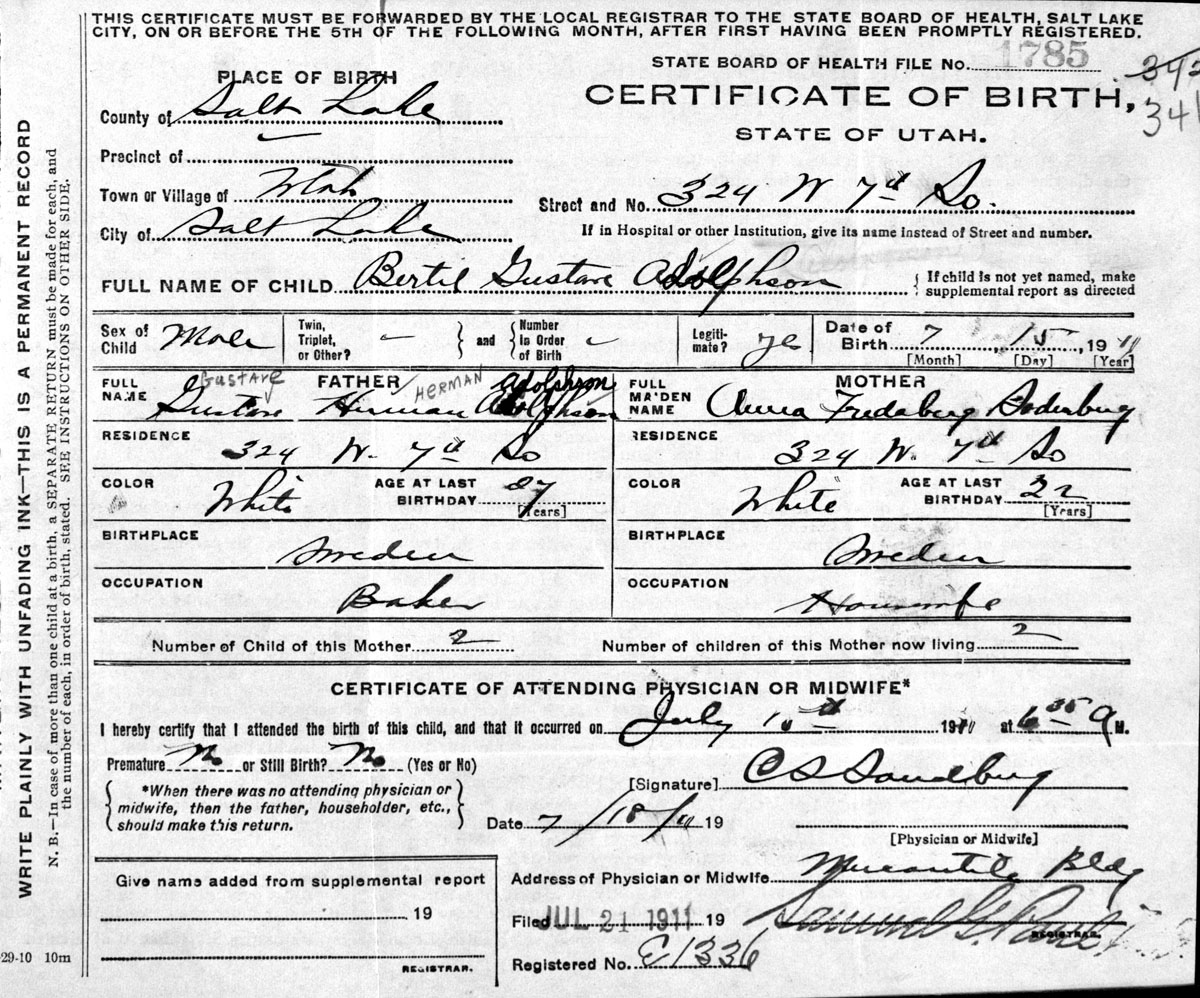 THIS CERTIFICATE MUST BE FORWARDED BY THE LOCAL REGISTRAR TO THE STATE BOARD OF HEALTH, SALT LAKE
CITY, ON OR BEFORE THE 5TH OF THE FOLLOWING MONTH, AFTER FIRST HAVING BEEN PROMPTLY REGISTERED.
STATE BOARD OF HEALTH FILE No. 1785
341
PLACE OF BIRTH
CERTIFICATE OF BIRTH,
STATE OF UTAH.
County of Salt Lake
Precinct of
Town or Village of Utah
Street and No. 324 W 7th So.
City of Salt Lake
If in Hospital or other Institution, give its name instead of Street and number.
FULL NAME OF CHILD Bertil Gustave Adolphson
{ If child is not yet named, make
supplemental report as directed
Sex of Child Male
Twin, Triplet, or Other? -
and
Number in Order of Birth -
Legiti-mate? yes
Date of Birth 7 15, 1911
[Month] [Day] [Year]
FULL NAME FATHER
Gustave HERMAN Adolphson
Gustave Herman Adolphson
FULL MAIDEN NAME MOTHER
Anna Fredaberg Soderburg
RESIDENCE 324 W. 7th So
RESIDENCE 324 W. 7th So
COLOR White
AGE AT LAST BIRTHDAY 27 [Years]
COLOR White
AGE AT LAST BIRTHDAY 22 [Years]
BIRTHPLACE Sweden
BIRTHPLACE Sweden
OCCUPATION Baker
OCCUPATION Housewife
Number of Child of this Mother 2
Number of children of this Mother now living 2
CERTIFICATE OF ATTENDING PHYSICIAN OR MIDWIFE*
I hereby certify that I attended the birth of this child, and that it occurred on July 1911 at 6 35 M.
Premature No or Still Birth? No (Yes or No)
*When there was no attending physician or
midwife, then the father, householder, etc.,
should make this return.
[Signature] C S Sandburg
Date 7/18/11 19
[Physician or Midwife]
Give name added from supplemental report
19
REGISTRAR.
Address of Physician or Midwife Mercantile Bldg
Filed JUL 21 1911 19 Samuel G. Paul
REGISTRAR.
Registered No. C1336
WRITE PLAINLY WITH UNFADING INK—THIS IS A PERMANENT RECORD
N. B.—In case of more than one child at a birth, a SEPARATE RETURN must be made for each, and
the number of each, in order of birth, stated. SEE INSTRUCTIONS ON OTHER SIDE.
29-10 10m